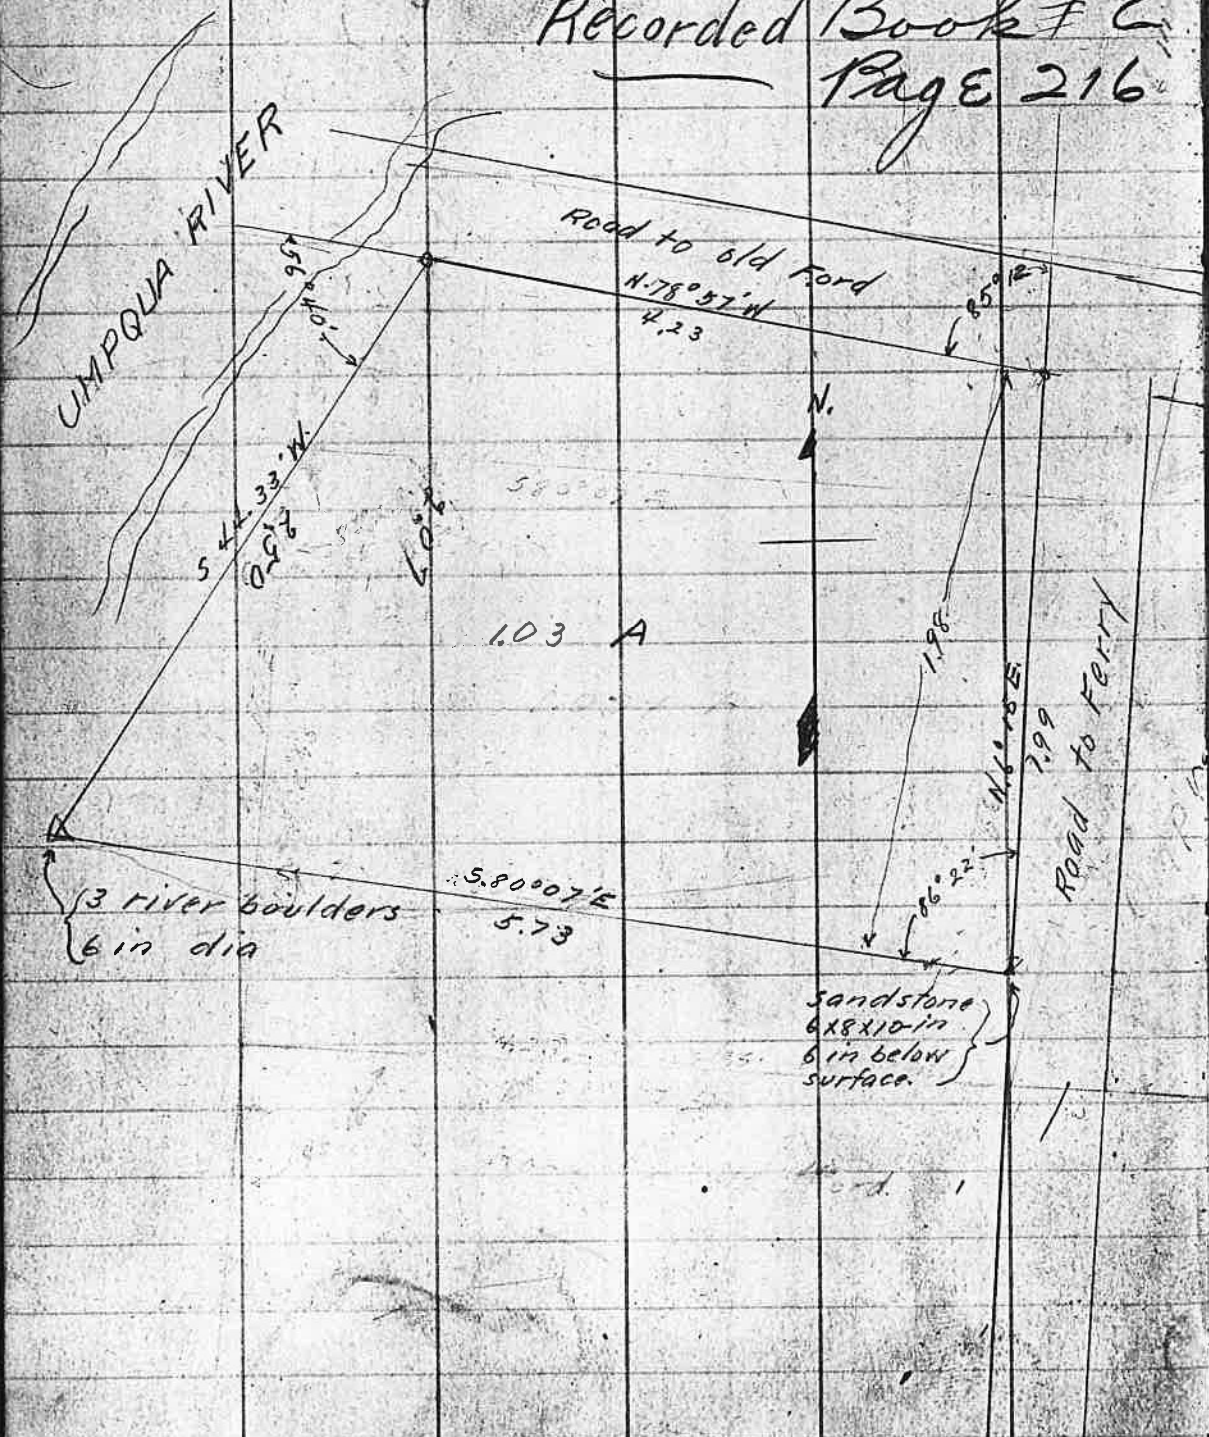 Recorded Book # C
Page 216
UMPQUA RIVER
Road to old Ford
N.78°57'W
4.23
85°12'
56°40'
N.
S 44.33'W.
2.50
1.03 A
1.98
N.6°15E.
1.99
Road to Ferry
86°22'
S.80°07'E
5.73
3 river boulders
6 in dia
Sandstone
6x8x10-in
6 in below
surface.